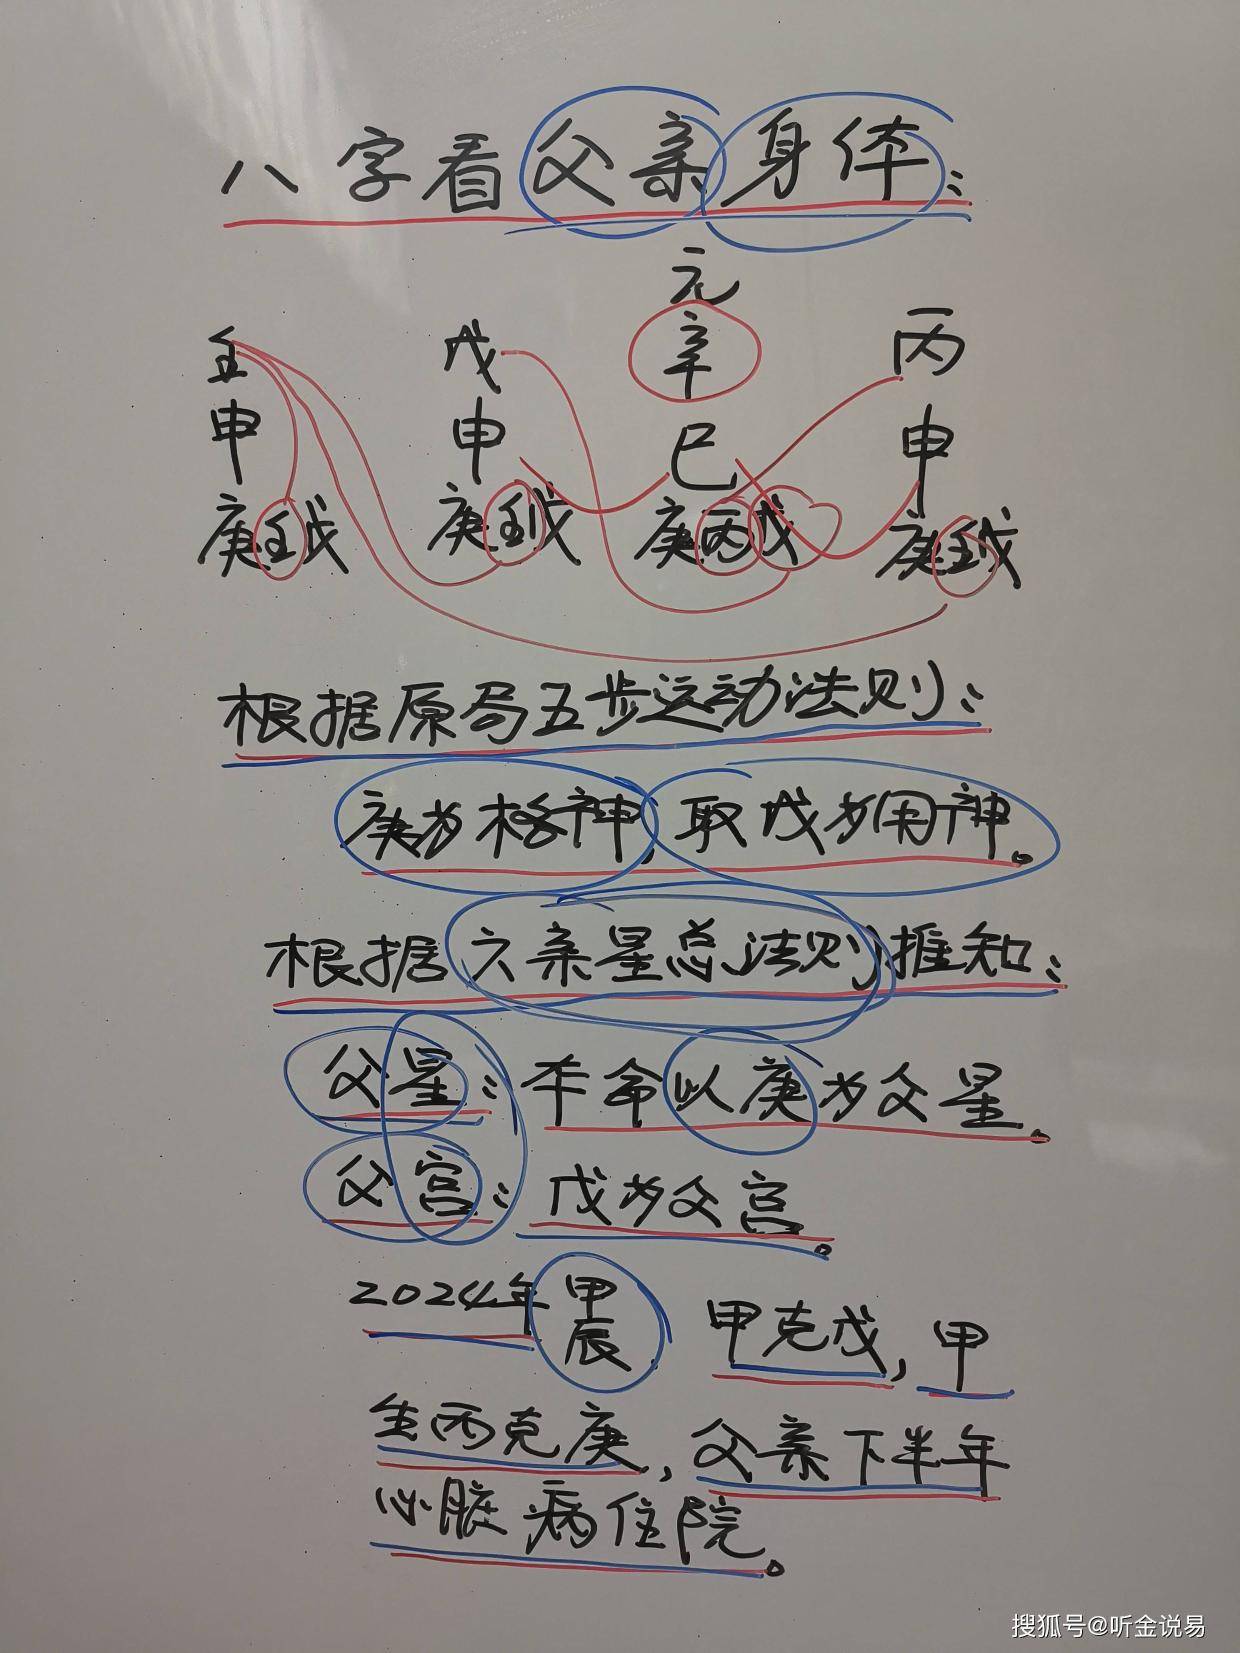 八字看父亲身体：
元
壬 戊 辛 丙
申 申 巳 申
庚壬戊 庚壬戊 庚丙戊 庚壬戊
根据原局五步运动法则：
庚为格神，取戊为用神。
根据六亲星总法则推知：
父星：本命以庚为父星。
父宫：戊为父宫。
2024年甲辰 甲克戊，甲
生丙克庚，父亲下半年
心脏病住院。
搜狐号@听金说易